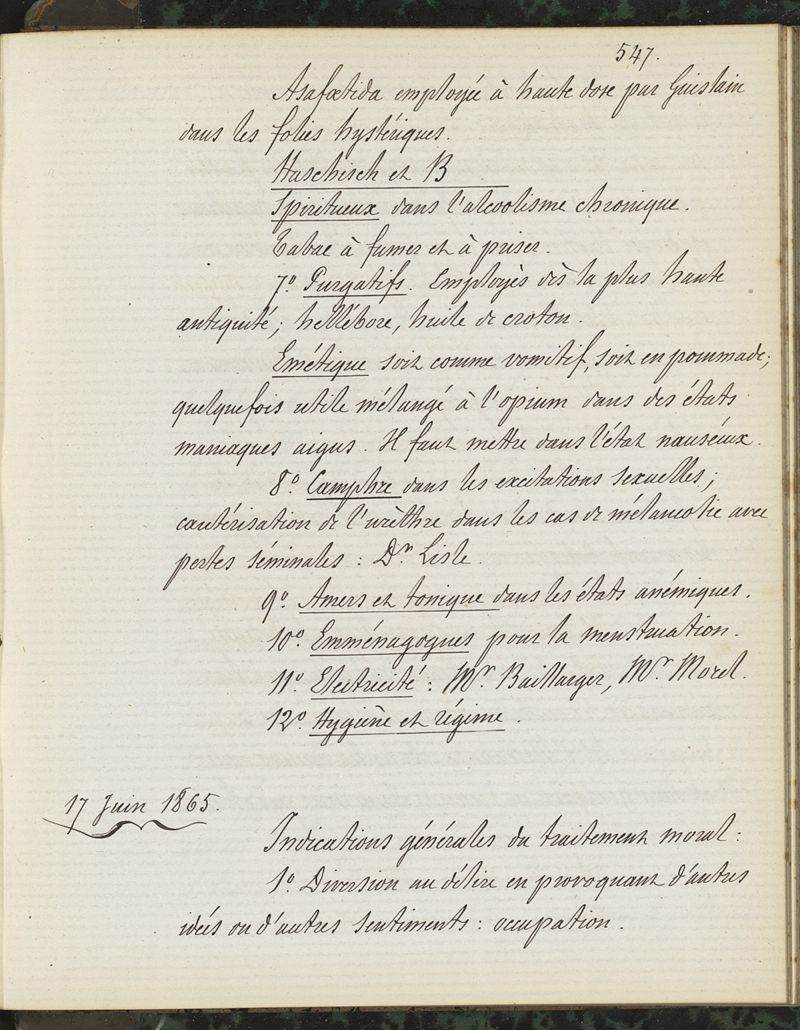 547.
Asafœtida employée à haute dose par Guislain
dans les folies hystériques.
Haschisch et B
Spiritueux dans l'alcoolisme chronique.
Tabac à fumer et à priser.
7º. Purgatifs. Employés dès la plus haute
antiquité; hellébore, huile de croton.
Emétique soit comme vomitif, soit en pommade;
quelquefois utile mélangé à l'opium dans des états
maniaques aigus. Il faut mettre dans l'état nauséeux.
8º. Camphre dans les excitations sexuelles;
cautérisation de l'urèthre dans les cas de mélancolie avec
pertes séminales : Dr. Lisle.
9º. Amers et tonique dans les états anémiques.
10º. Emménagogues pour la menstruation.
11º. Electricité : Mr. Baillarger, Mr. Morel.
12º. Hygiène et régime.
17 Juin 1865.
Indications générales du traitement moral :
1º. Diversion au délire en provoquant d'autres
idées ou d'autres sentiments : occupation.